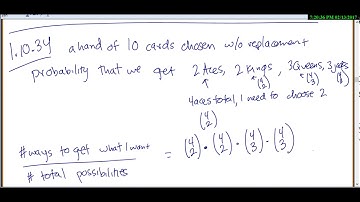 7:20:36 PM 02/13/2017
1.10.34 a hand of 10 cards chosen w/o replacement
probability that we get 2 Aces, 2 Kings, 3 Queens, 3 jacks
(4 2) (4 3) (4 3)
4 aces total, I need to choose 2
(4 2)
# ways to get what I want
# total possibilities
= (4 2) · (4 2) · (4 3) · (4 3)